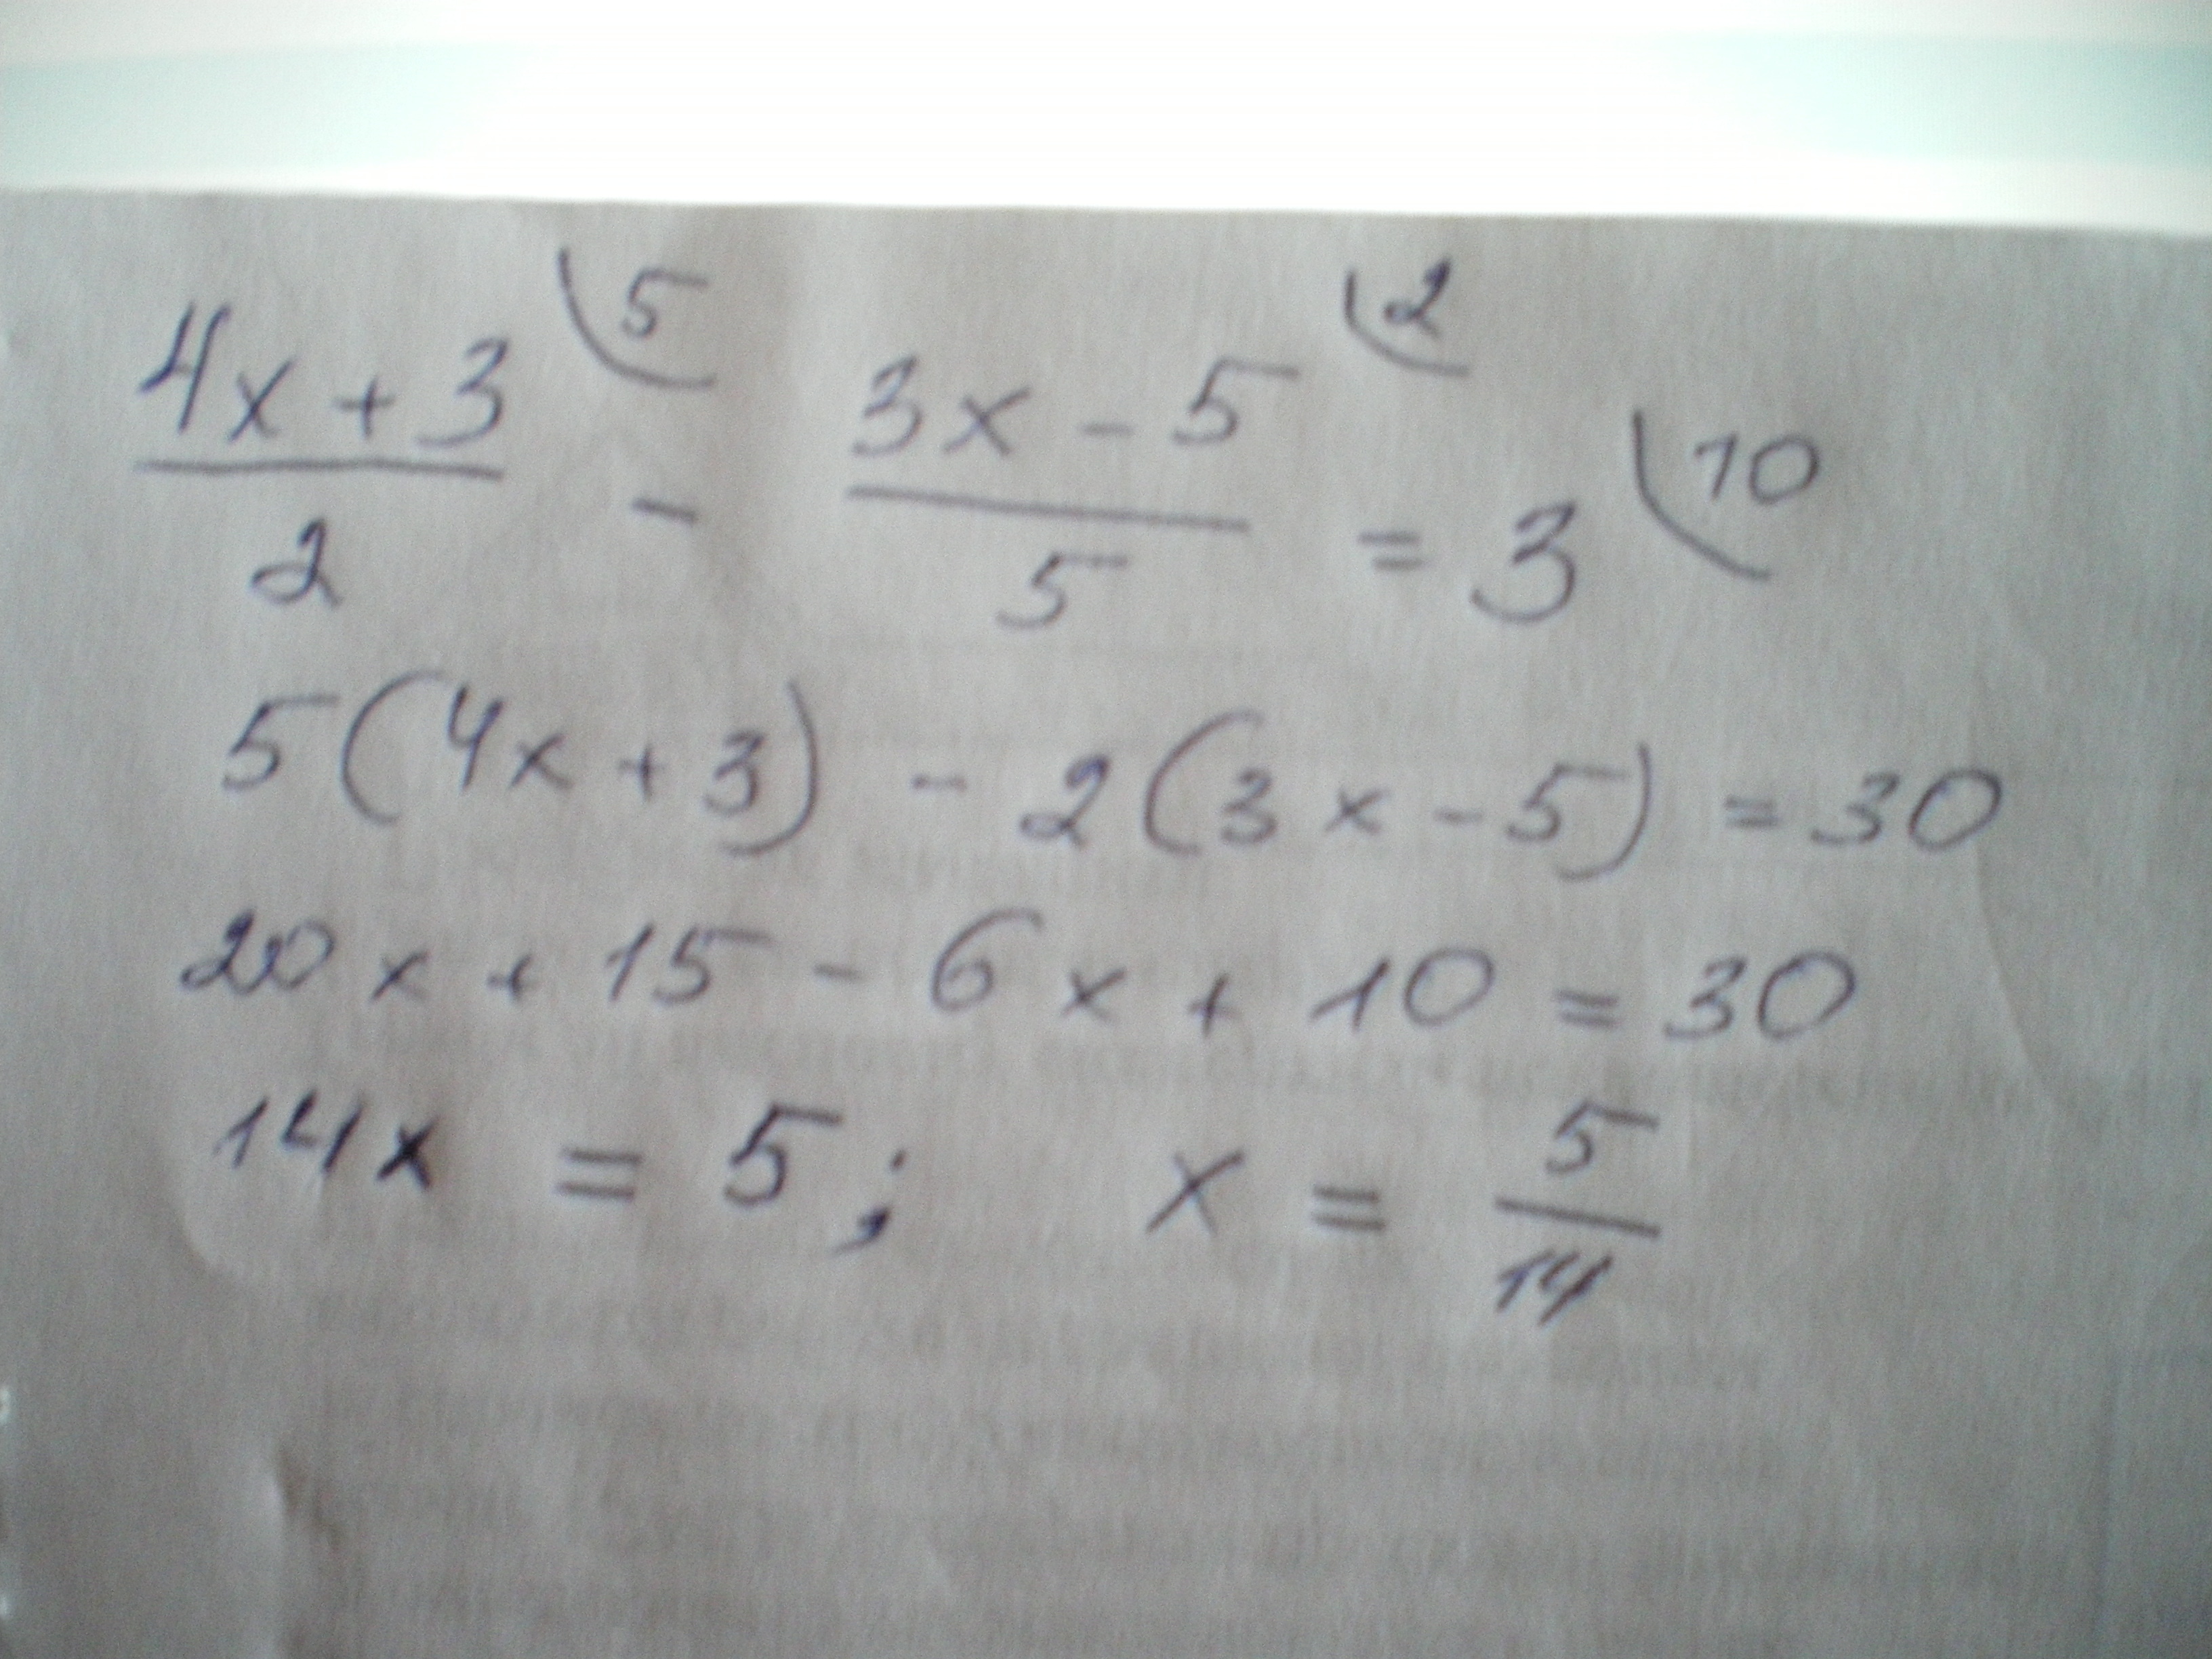 (4x + 3)/2 \5 - (3x - 5)/5 \2 = 3 \10
5(4x + 3) - 2(3x - 5) = 30
20x + 15 - 6x + 10 = 30
14x = 5; x = 5/14